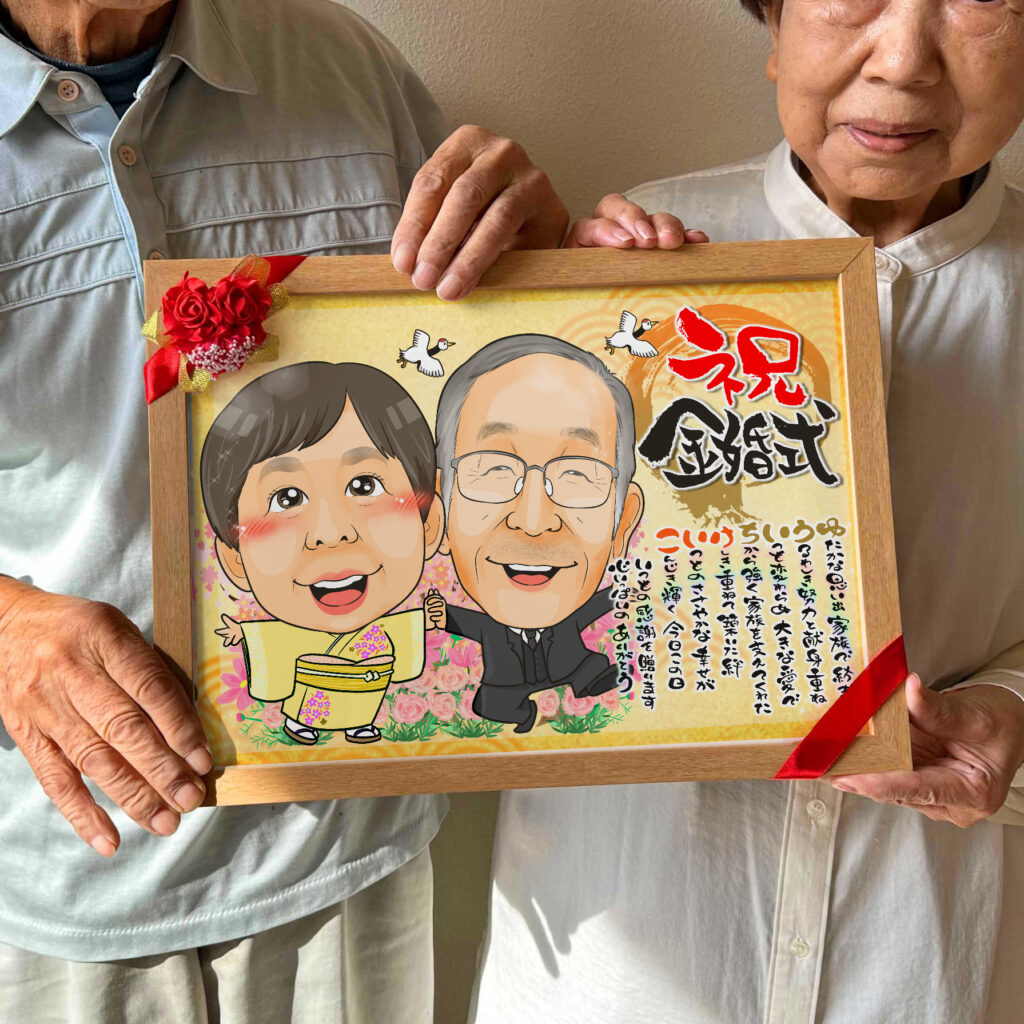 祝
金婚式
ゆたかな思い出 家族で紡ぎ
うるわしき 努力と献身重ね
いつも変わらぬ 大きな愛で
ちから強く 家族を支えてくれた
けしき重ねて 築いた絆
いつものささやかな幸せが
こんじき輝く 今日この日
いつもの感謝を贈ります
心いっぱいのありがとう